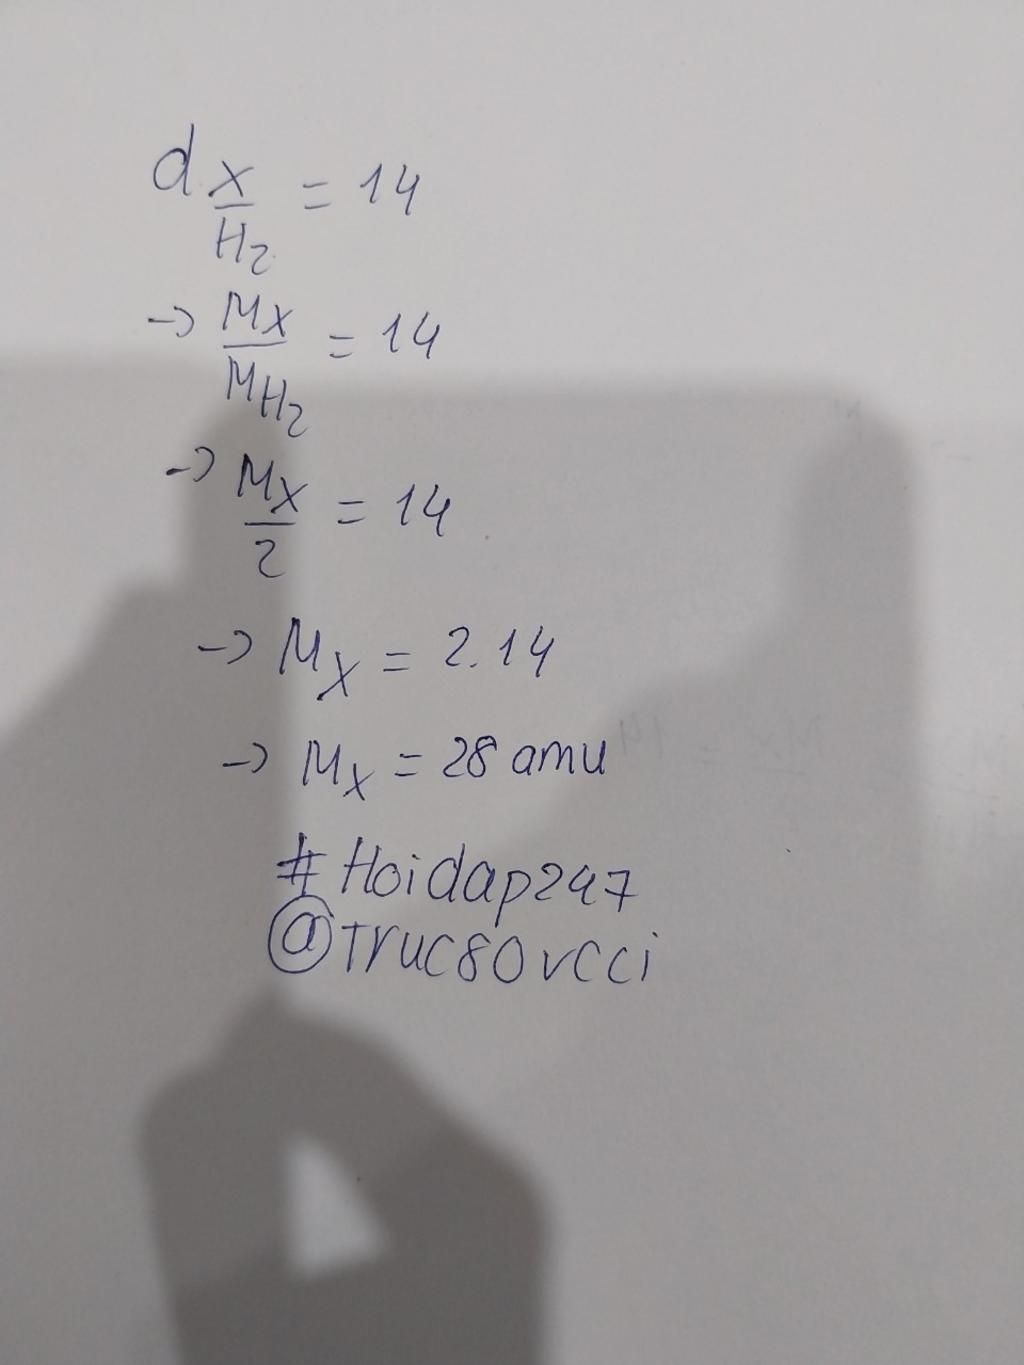 d X/H2 = 14
-> MX/MH2 = 14
-> MX/2 = 14
-> MX = 2.14
-> MX = 28 amu
# Hoidap247
@Truc80vcci